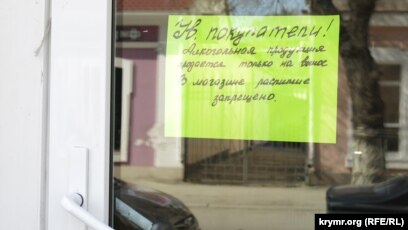 Ув. покупатели!
Алкогольная продукция
продается только на вынос
В магазине распитие
запрещено.
krymr.org (RFE/RL)